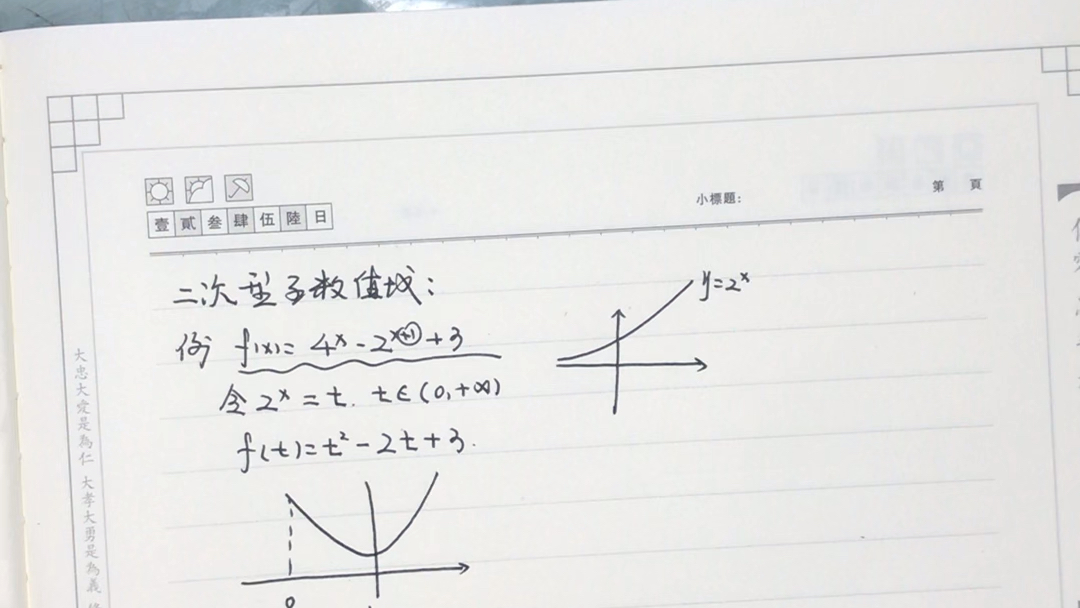 小標題：
第 頁
壹 貳 叁 肆 伍 陸 日
二次型函数值域：
例 f(x)= 4^x - 2^{x+1} + 3
令 2^x = t. t∈(0,+∞)
f(t)=t²-2t+3.
y=2^x
0
大忠大愛是為仁 大孝大勇是為義